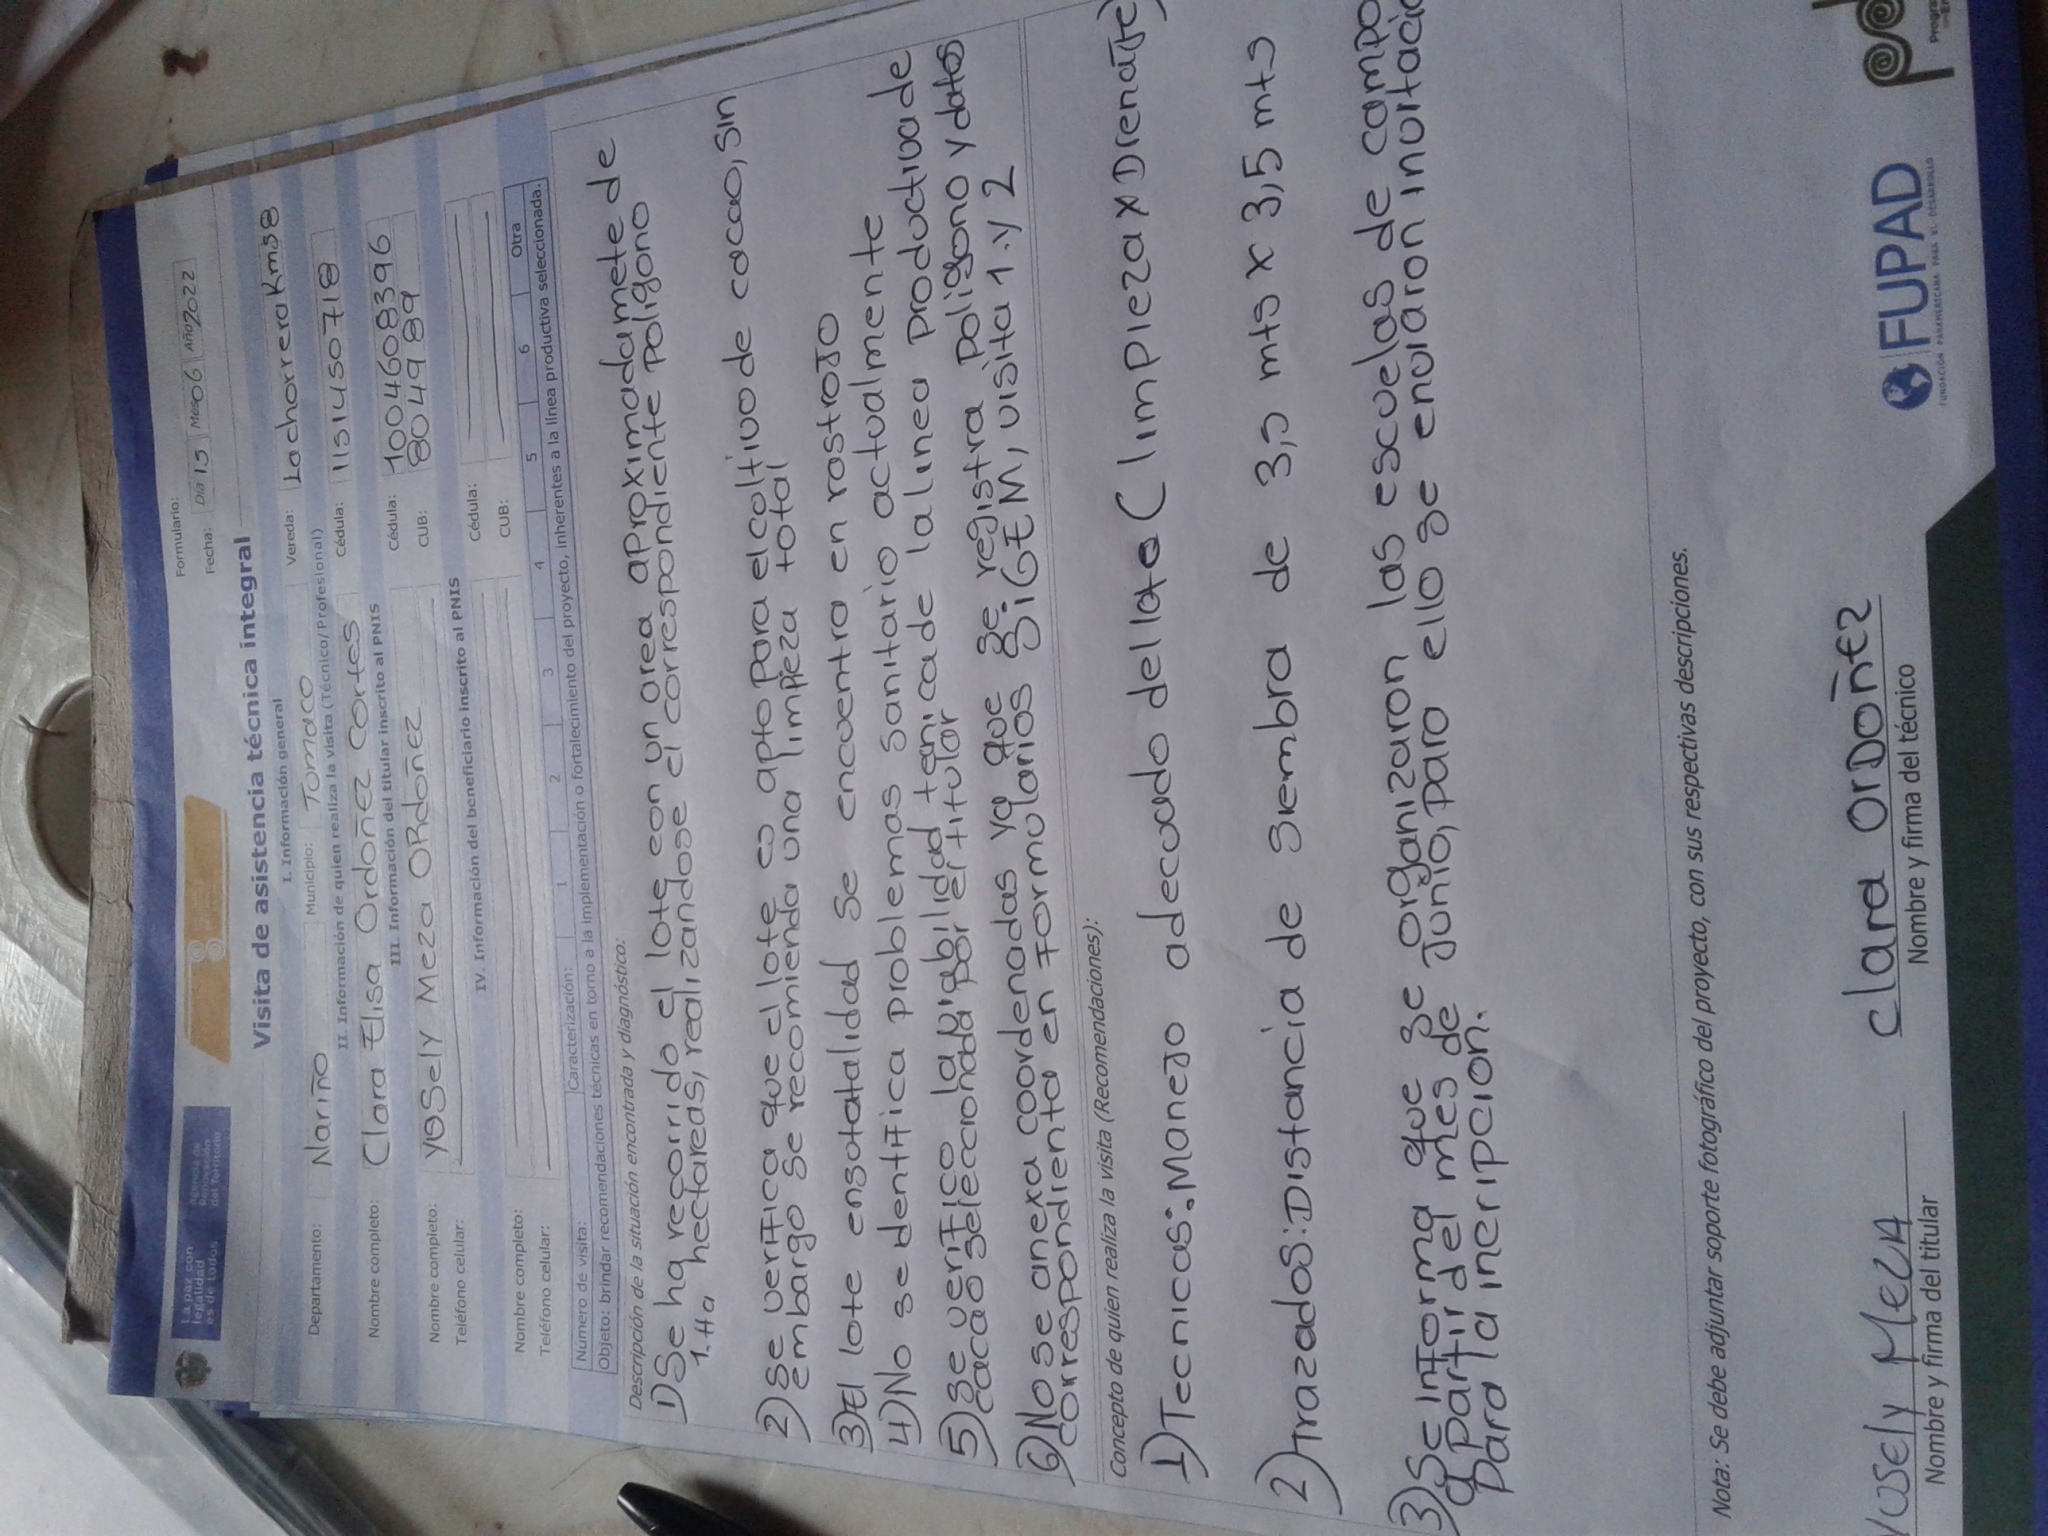 La paz con
legalidad
es de todos
Agencia de
Renovación
del Territorio
Formulario:
Fecha: Día 15 Mes 06 Año 2022
Visita de asistencia técnica integral
I. Información general
Departamento: Nariño Municipio: Tomaco Vereda: La chorrera Km 38
II. Información de quien realiza la visita (Técnico/Profesional)
Nombre completo: Clara Elisa Ordoñez Cortes Cédula: 1151450718
III. Información del titular inscrito al PNIS
Nombre completo: YoSely Meza ORdoñez Cédula: 1004608396
Teléfono celular: CUB: 8049989
IV. Información del beneficiario inscrito al PNIS
Nombre completo: Cédula:
Teléfono celular: CUB:
Número de visita: Caracterización: 1 2 3 4 5 6 Otra
Objeto: brindar recomendaciones técnicas en torno a la implementación o fortalecimiento del proyecto, inherentes a la línea productiva seleccionada.
Descripción de la situación encontrada y diagnóstico:
1) Se ha recorrido el lote con un area aproximadamete de
1.Ha hectareas, realizandose el correspondiente Poligono
2) se verifica que el lote es apto para el coltivo de cacao, sin
embargo se recomienda una limpieza total
3) El lote ensotatalidad se encuentra en rastrojo
4) No se dentifica problemas sanitario actualmente
5) se verifico la viabilidad tecnica de la linea productiva de
cacao seleccionada por el titular
6) No se anexa coordenadas ya que se registra poligono y datos
correspondienta en formularios SiGEM, visita 1 y 2
Concepto de quien realiza la visita (Recomendaciones):
1) Tecnicos: Manejo adecuado del lote (limpieza x Drenaje)
2) Trazados: Distancia de siembra de 3,5 mts x 3,5 mts
3) Se informa que se organizaron las escuelas de campo
a partir del mes de Junio, para ello se enviaron invitacio
para la incripcion.
Nota: Se debe adjuntar soporte fotográfico del proyecto, con sus respectivas descripciones.
Yosely Meza
Nombre y firma del titular
Clara Ordoñez
Nombre y firma del técnico
FUPAD
FUNDACIÓN PANAMERICANA PARA EL DESARROLLO